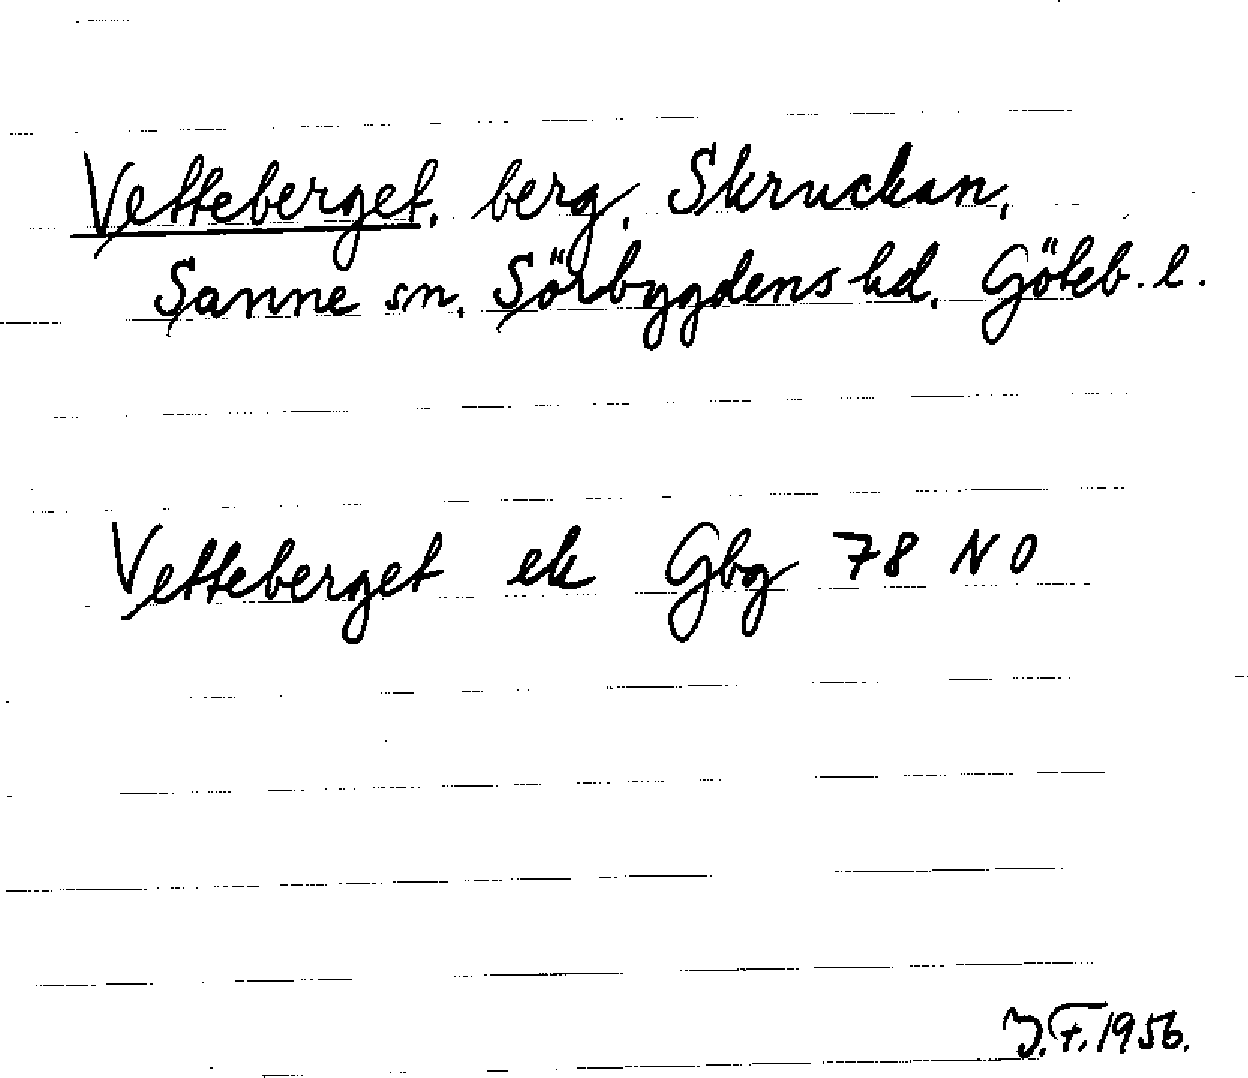 Vetteberget, berg, Skruckan,
Sanne sn, Sörbygdens hd, Göteb. l.
Vetteberget ek Gbg 78 NO
J.F. 1956.